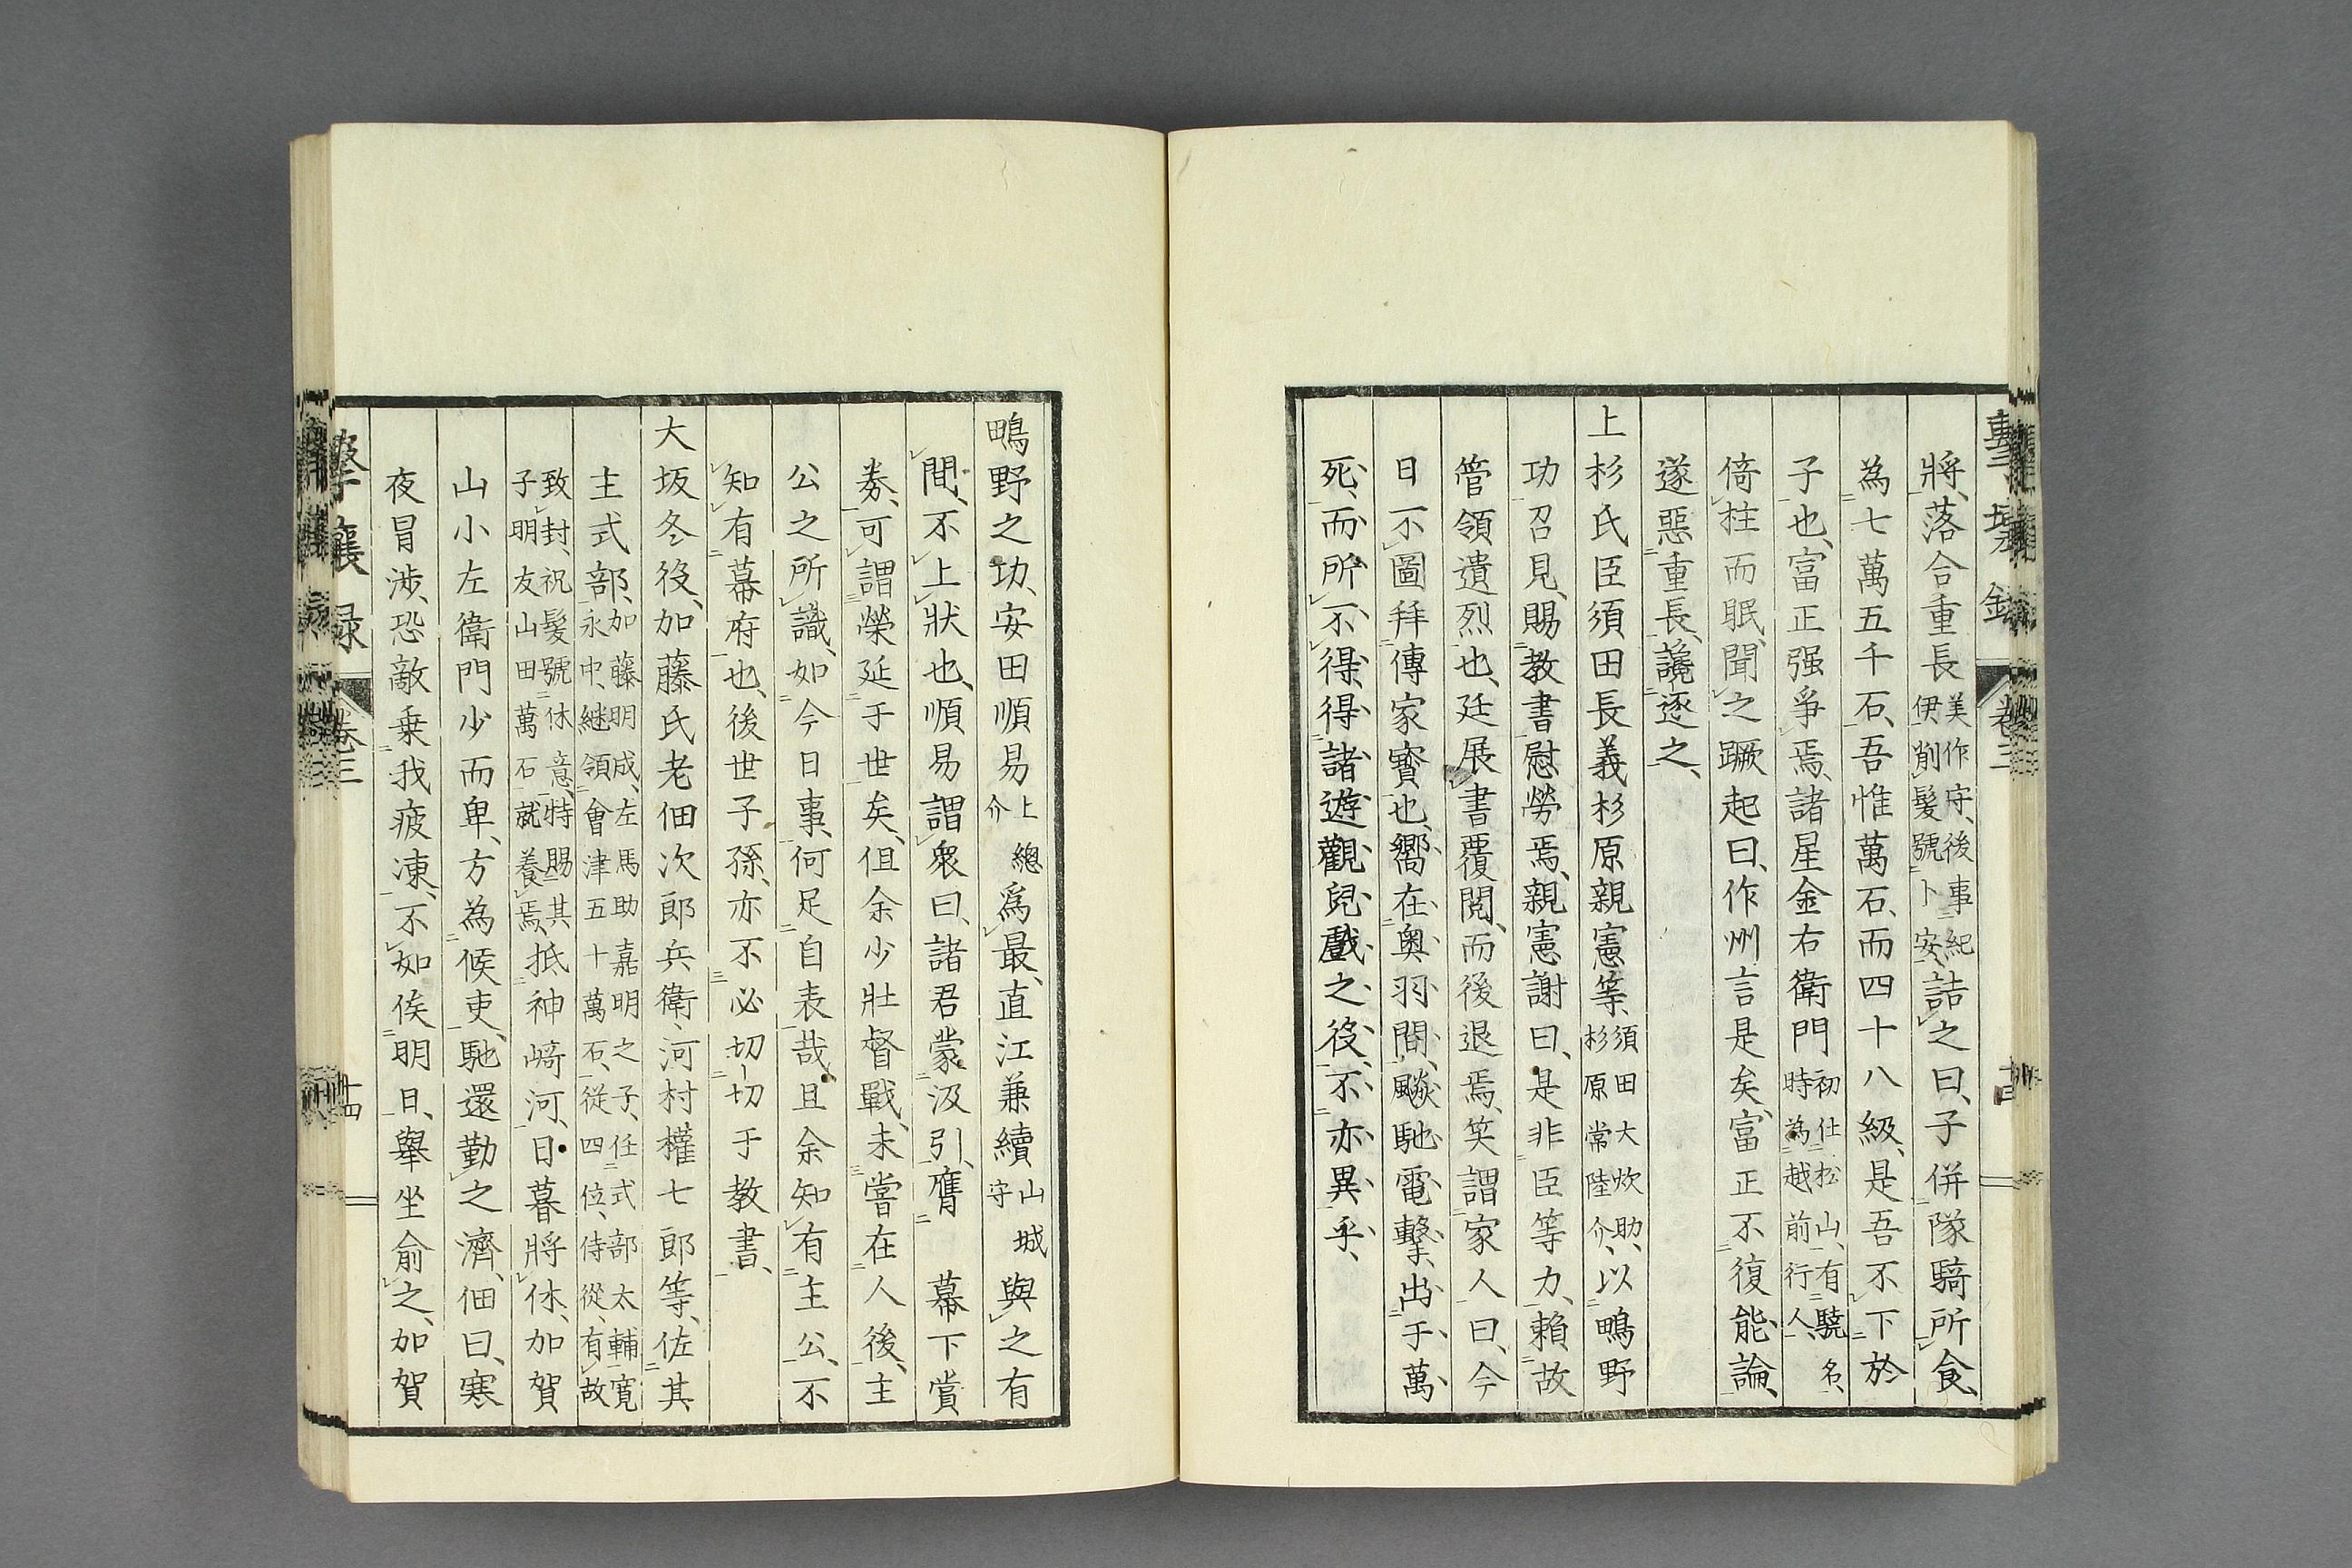 將、落合重長美作守、後事紀伊、削髮號卜安、詰之曰、子併隊騎所食、
為七萬五千石、吾惟萬石、而四十八級、是吾不下於
子也、富正强爭焉、諸星金右衛門初仕松山、有驍名、時為越前行人、
倚柱而眠、聞之蹶起曰、作州言是矣、富正不復能論、
遂惡重長、讒逐之、
上杉氏臣須田長義杉原親憲等、須田大炊助、杉原常陸介、以鴫野
功召見、賜教書慰勞焉、親憲謝曰、是非臣等力、賴故
管領遺烈也、廷展書覆閲、而後退焉、笑謂家人曰、今
日不圖拜傳家寶也、嚮在奧羽間、飈馳電擊、出于萬
死、而所不得、得諸遊觀兒戲之役、不亦異乎、
卷三
十四
鴫野之功、安田順易上總介為最、直江兼續山城守與之有
間、不上狀也、順易謂衆曰、諸君蒙汲引、膺 幕下賞
劵、可謂榮延于世矣、但余少壯督戰、未嘗在人後、主
公之所識、如今日事、何足自表哉、且余知有主公、不
知有幕府也、後世子孫、亦不必切切于教書、
大坂冬役、加藤氏老佃次郎兵衛、河村權七郎等、佐其
主式部、加藤明成、左馬助嘉明之子、任式部太輔、寛永中、継領會津五十萬石、從四位、侍從、有故
致封、祝髮號休意、特賜其子明友山田萬石、就養焉、抵神崎河、日暮將休、加賀
山小左衛門少而卑、方為候吏、馳還勤之濟、佃曰、寒
夜冒涉、恐敵乗我疲凍、不如俟明日、舉坐俞之、加賀
卷三
十四